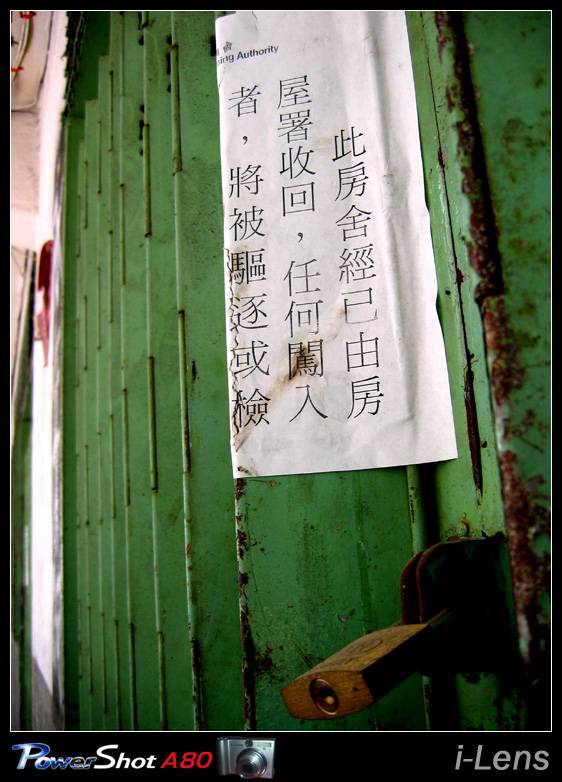 會
ing Authority
此房舍經已由房
屋署收回，任何闖入
者，將被驅逐或檢
PowerShot A80
i-Lens